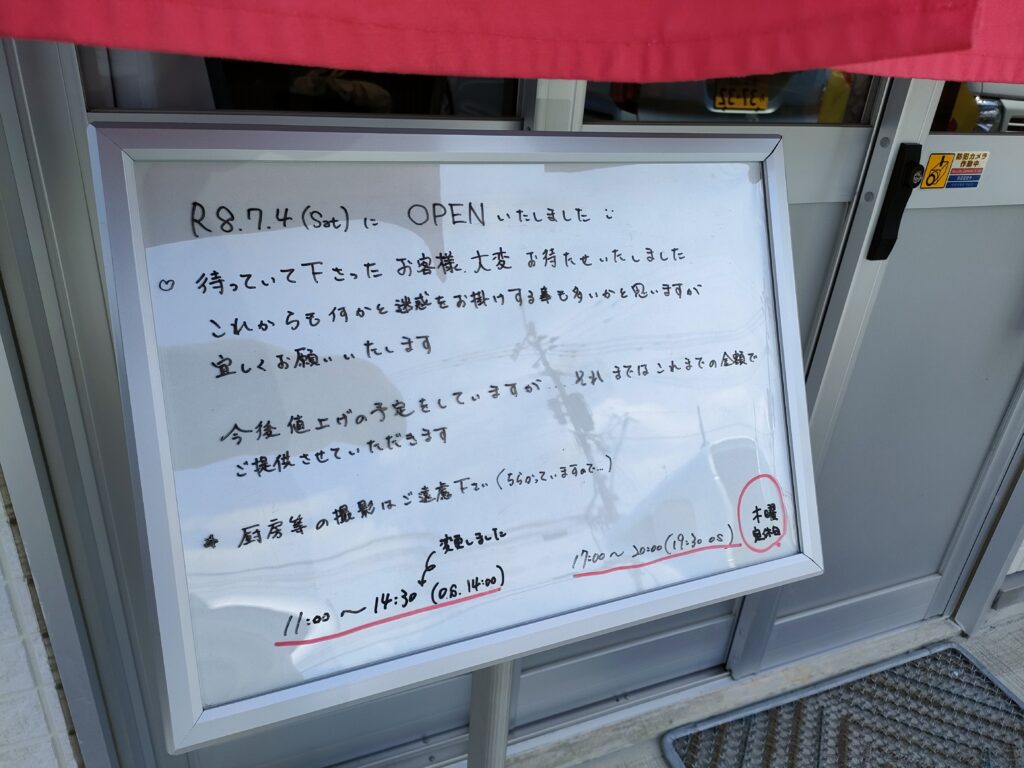 R8.7.4(Sat)に OPENいたしました
♡ 待っていて下さったお客様、大変お待たせいたしました
これからも何かと迷惑をお掛けする事も多いかと思いますが
宜しくお願いいたします
今後値上げの予定をしていますが…それまではこれまでの金額で
ご提供させていただきます
* 厨房等の撮影はご遠慮下さい(ちらかっていますので…)
変更しました
11:00〜14:30(os.14:00)
17:00〜20:00(19:30 os)
木曜
定休日
37-32
防犯カメラ
作動中